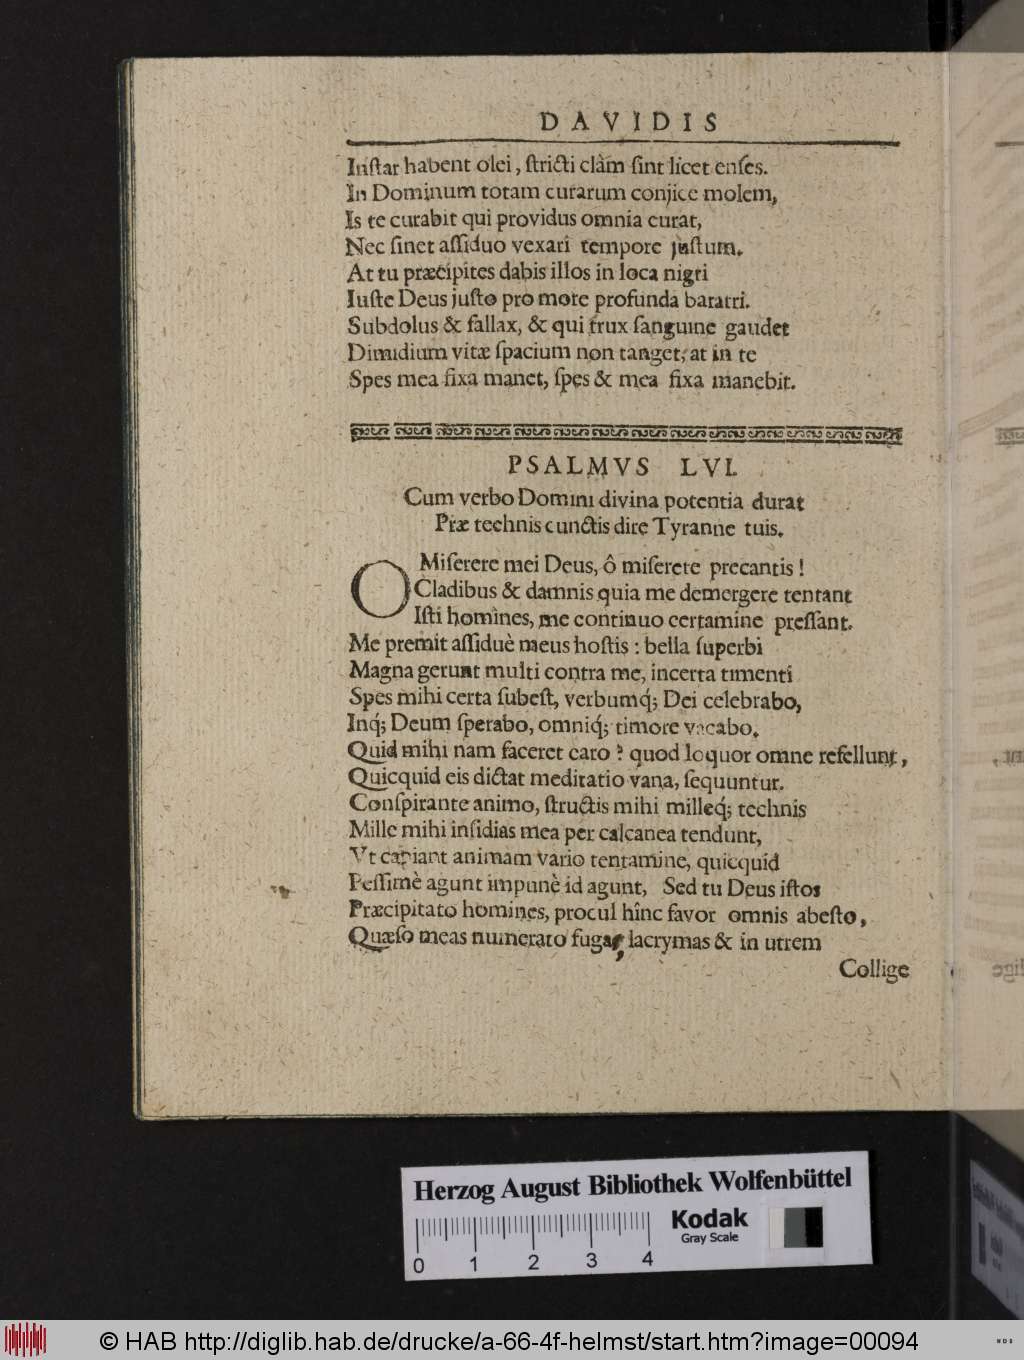 DAVIDIS
Inſtar habent olei, ſtricti clàm ſint licet enſes.
In Dominum totam curarum conjice molem,
Is te curabit qui providus omnia curat,
Nec ſinet aſſiduo vexari tempore juſtum.
At tu præcipites dabis illos in loca nigri
Iuſte Deus juſto pro more profunda baratri.
Subdolus & fallax, & qui trux ſanguine gaudet
Dimidium vitæ ſpacium non tanget, at in te
Spes mea fixa manet, ſpes & mea fixa manebit.
PSALMVS LVI.
Cum verbo Domini divina potentia durat
Præ technis cunctis dire Tyranne tuis.
O Miſerere mei Deus, ô miſerere precantis!
Cladibus & damnis quia me demergere tentant
Iſti homines, me continuo certamine preſſant.
Me premit aſſiduè meus hoſtis: bella ſuperbi
Magna gerunt multi contra me, incerta timenti
Spes mihi certa ſubeſt, verbumq́; Dei celebrabo,
Inq́; Deum ſperabo, omniq́; timore vacabo.
Quid mihi nam faceret caro? quod loquor omne refellunt,
Quicquid eis dictat meditatio vana, ſequuntur.
Conſpirante animo, ſtructis mihi milleq́; technis
Mille mihi inſidias mea per calcanea tendunt,
Vt capiant animam vario tentamine, quicquid
Peſſimè agunt impunè id agunt, Sed tu Deus iſtos
Præcipitato homines, procul hînc favor omnis abeſto,
Quæſo meas numerato fugas, lacrymas & in utrem
Collige
Herzog August Bibliothek Wolfenbüttel
Kodak
Gray Scale
0 1 2 3 4
© HAB http://diglib.hab.de/drucke/a-66-4f-helmst/start.htm?image=00094